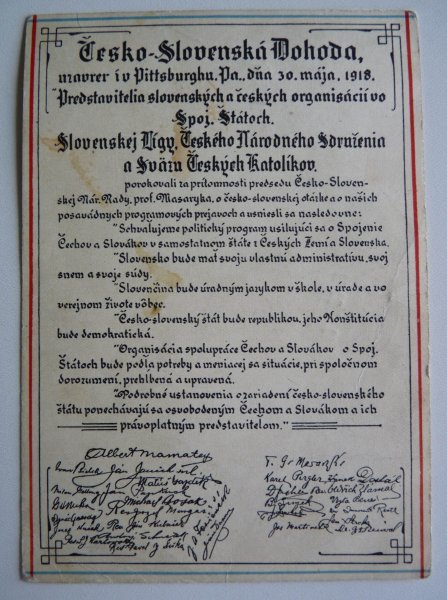 Česko-Slovenská Dohoda,
uzavretá v Pittsburghu, Pa., dňa 30. mája, 1918.
"Predstavitelia slovenských a českých organisácií vo
Spoj. Štátoch.
Slovenskej Ligy, Českého Národného Sdruženia
a Sväzu Českých Katolíkov,
porokovali za prítomnosti predsedu Česko-Sloven-
skej Nár. Rady, prof. Masaryka, o česko-slovenskej otázke a o našich
posavádnych programových prejavoch a usniesli sa nasledovne:
"Schvaľujeme politický program usilujúci sa o Spojenie
Čechov a Slovákov v samostatnom štáte z Českých Zemí a Slovenska.
"Slovensko bude mať svoju vlastnú administratívu, svoj
snem a svoje súdy.
"Slovenčina bude úradným jazykom v škole, v úrade a vo
verejnom živote vôbec.
"Česko-slovenský štát bude republikou, jeho Konštitúcia
bude demokratická.
"Organisácia spolupráce Čechov a Slovákov v Spoj.
Štátoch bude podľa potreby a meniacej sa situácie, pri spoločnom
dorozumení, prehĺbená a upravená.
"Podrobné ustanovenia o zariadení česko-slovenského
štátu ponechávajú sa osvobodeným Čechom a Slovákom a ich
právoplatným predstaviteľom."
Albert Mamatey
T. G. Masaryk
Karel Pergler
Ján Janček ml.
Matúš Gazdík
Michal Bosák